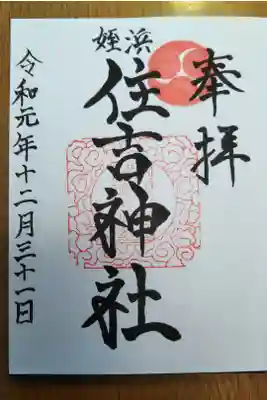 奉拝
姪浜
住吉神社
令和元年十二月三十一日